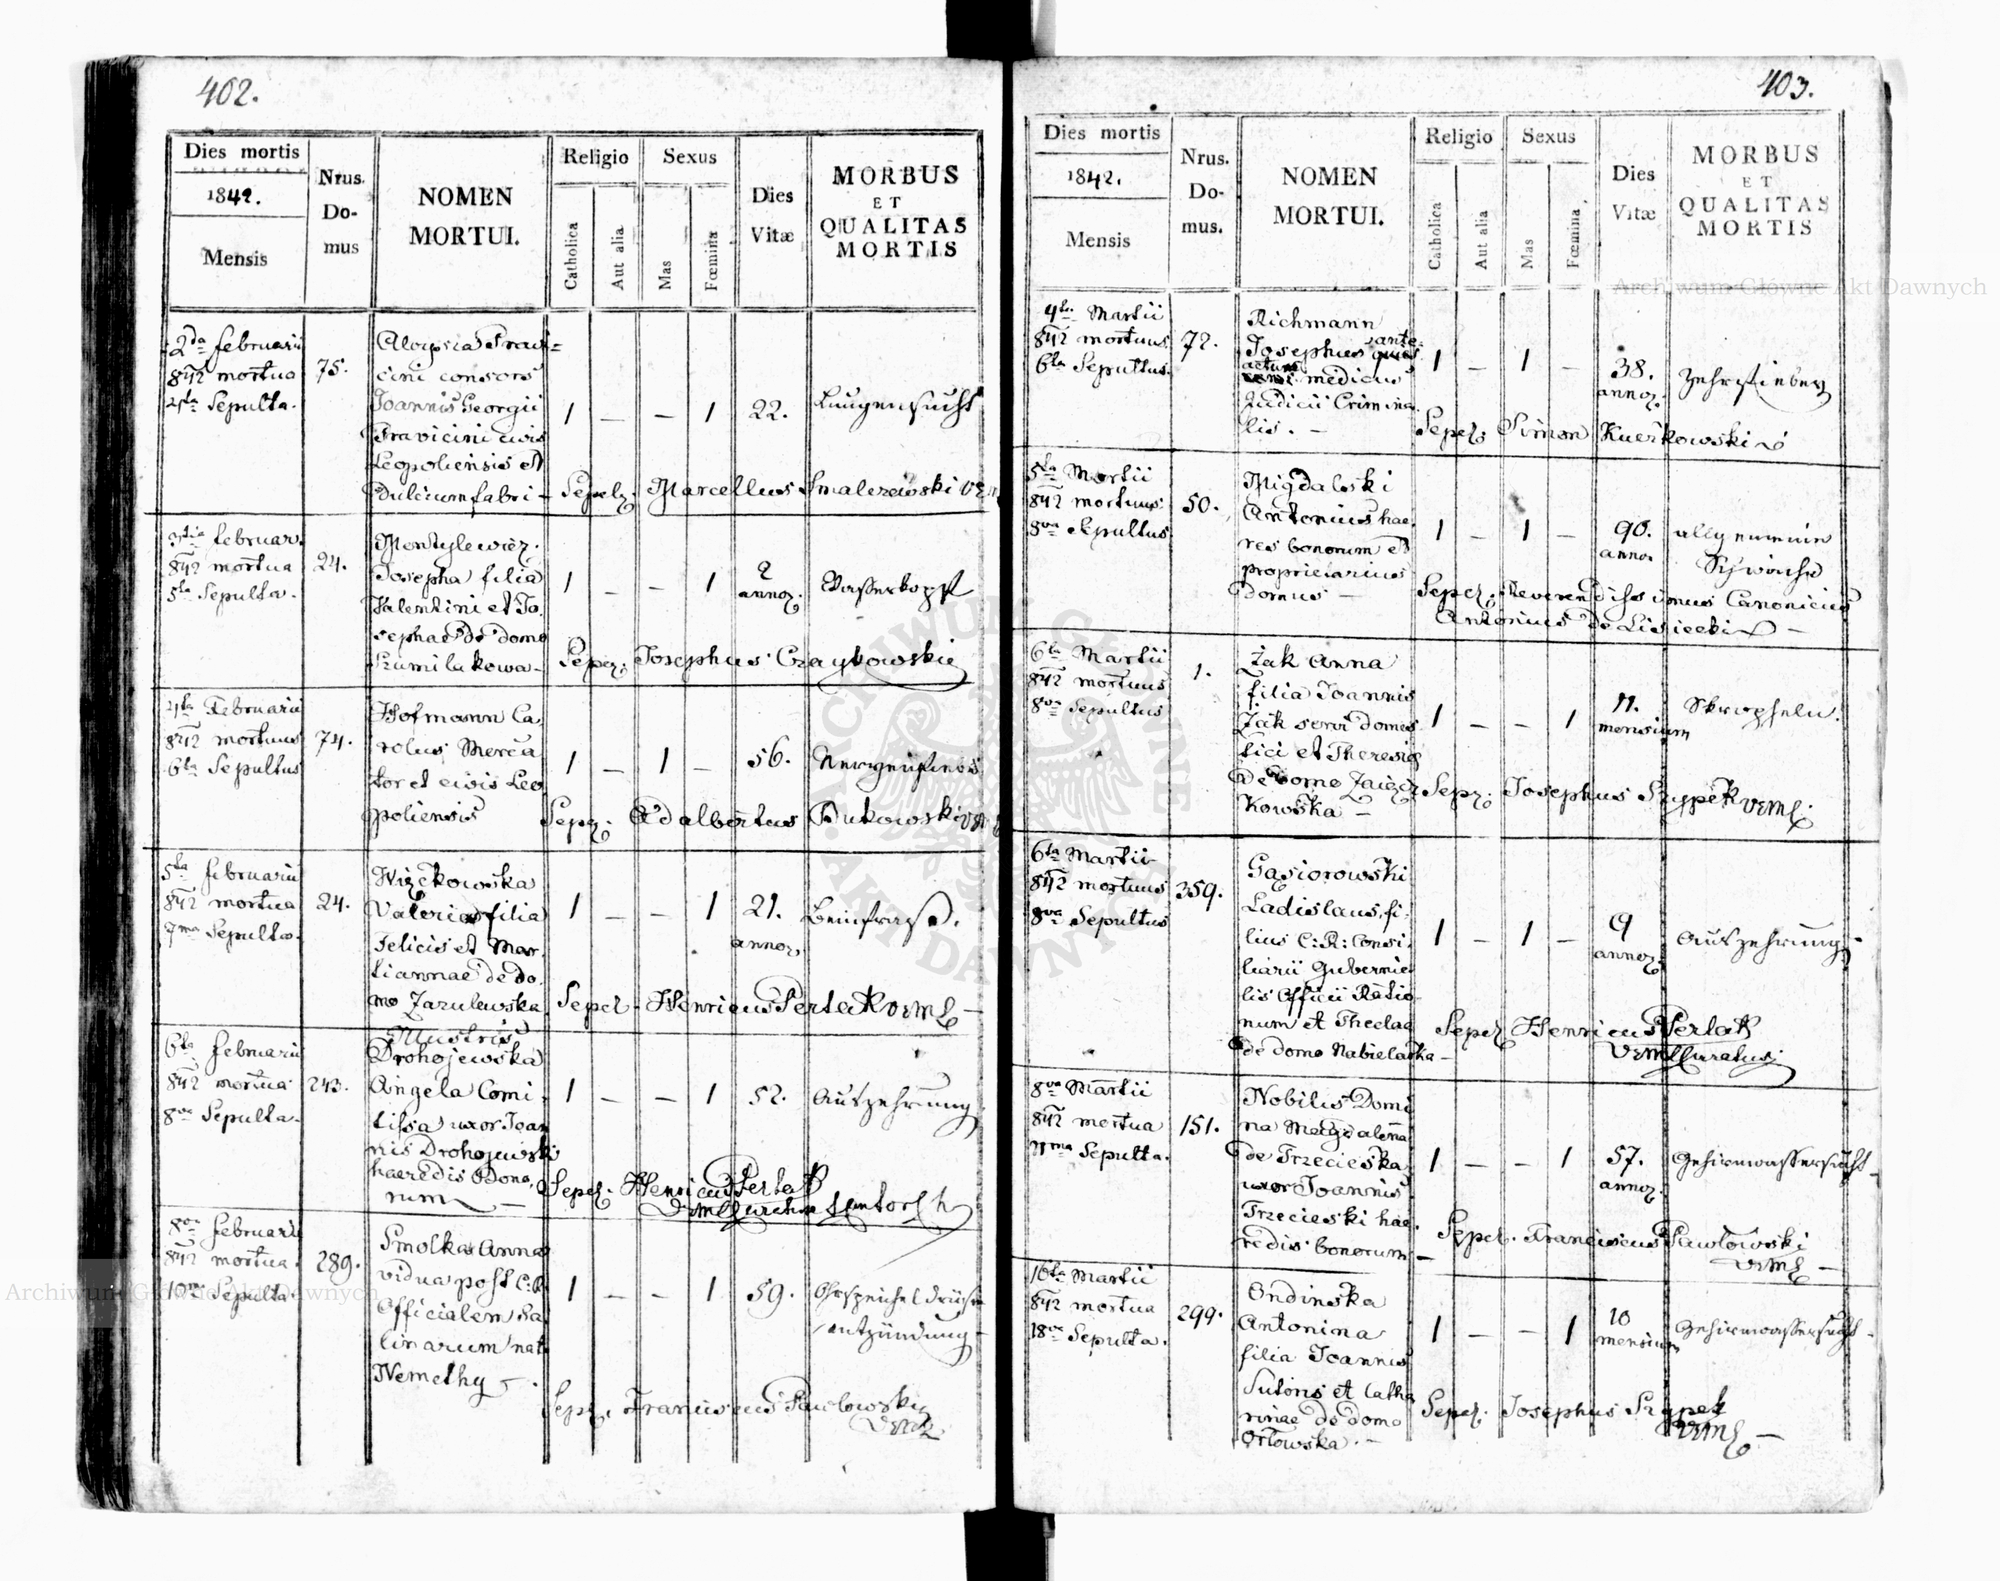 402.
Dies mortis
1842.
Mensis
Nrus.
Do-
mus
NOMEN
MORTUI.
Religio
Catholica
Aut alia
Sexus
Mas
Fœmina
Dies
Vitæ
MORBUS
ET
QUALITAS
MORTIS
2da februarii
842 mortua
4ta Sepulta.
75.
Aloysia Pravi=
cini consors
Joannis Georgii
Pravicini civis
Leopoliensis et
Dulcium fabri -
1 — — 1 22.
Lungensucht
Sepel. Marcellus Smalezewski
3tia februar.
842 mortua
5ta Sepulta.
24.
Mentylewicz.
Josepha filia
Valentini et Jo.
sephae de domo
Szumilakowa -
1 — — 1 2
annor.
Wasserkopf
Sepel. Josephus Czaykowski
4ta Februarii
842 mortuus
6ta Sepultus
74.
Hofmann Ca
rolus Merca
tor et civis Leo
poliensis
1 — 1 — 56.
Sepel. Adalbertus Bukowski
5ta februarii
842 mortua
7ma Sepulta.
24.
Więkowska
Valeria filia
Felicis et Mar
tiannae de do.
mo Zarulewska
1 — — 1 21.
annor.
Beinfraß.
Sepel. Henricus Perlak VEML
6ta februarii
842 mortua
8va Sepulta.
243.
Illustris
Drohojewska
Angela Comi
tissa uxor Joan
nis Drohojewski
haeredis Bono.
rum
1 — — 1 52.
Auszehrung
Sepel. Henricus Perlak
8va februarii
842 mortua.
10ma Sepulta.
289.
Smolka Anna
vidua post C:R
Officialem Sa
linarum nat.
Nemethy
1 — — 1 59.
Ohrspeicheldrüsen
entzündung
Sepel. Franciscus Pawlowski
VEML
403.
Dies mortis
1842.
Mensis
Nrus.
Do-
mus.
NOMEN
MORTUI.
Religio
Catholica
Aut alia
Sexus
Mas
Fœmina
Dies
Vitæ
MORBUS
ET
QUALITAS
MORTIS
4ta Martii
842 mortuus
6ta Sepultus.
72.
Richmann
Josephus ante
medicus
Judicii Crimina
lis.
1 — 1 — 38.
annor.
Zehrfieber
Sepel. Simon Kuczkowski
5ta Martii
842 mortuus
8va Sepultus
50.
Migdalski
Antonius hae.
res bonorum et
proprietarius
Domus —
1 — 1 — 90.
annor.
allgemeine
Schwäche
Sepel. Reverendissimus Canonicus
Antonius de Lisiecki
6ta Martii
842 mortuus
8va Sepultus
1.
Żak Anna
filia Joannis
Żak servi domes
tici et Theresia
de domo Zaięcz
kowska —
1 — — 1 11.
mensium
Skropheln.
Sepel. Josephus Szypek VEML.
6ta Martii
842 mortuus
8va Sepultus
359.
Gąsiorowski
Ladislaus, fi.
lius C:R: Consi.
liarii Gubernia
lis Officii Ratio
num et Theclae
de domo Nabielaska
1 — 1 — 9
annor.
Auszehrung.
Sepel. Henricus Perlak
VEML Curatus
8va Martii
842 mortua
11ma Sepulta.
151.
Nobilis Domi
na Magdalena
de Trzecieska
uxor Joannis
Trzecieski hae.
redis bonorum —
1 — — 1 57.
annor.
Gehirnwassersucht
Sepel. Franciscus Pawlowski
VEML —
16ta Martii
842 mortua
18va Sepulta.
299.
Ondinska
Antonina
filia Joannis
Sutoris et Catha
rinae de domo
Orłowska. —
1 — — 1 10
mensium
Gehirnwassersucht
Sepel. Josephus Szypek
VEML —
Archiwum Główne Akt Dawnych
Archiwum Główne Akt Dawnych
ARCHIWUM GŁÓWNE
AKT DAWNYCH